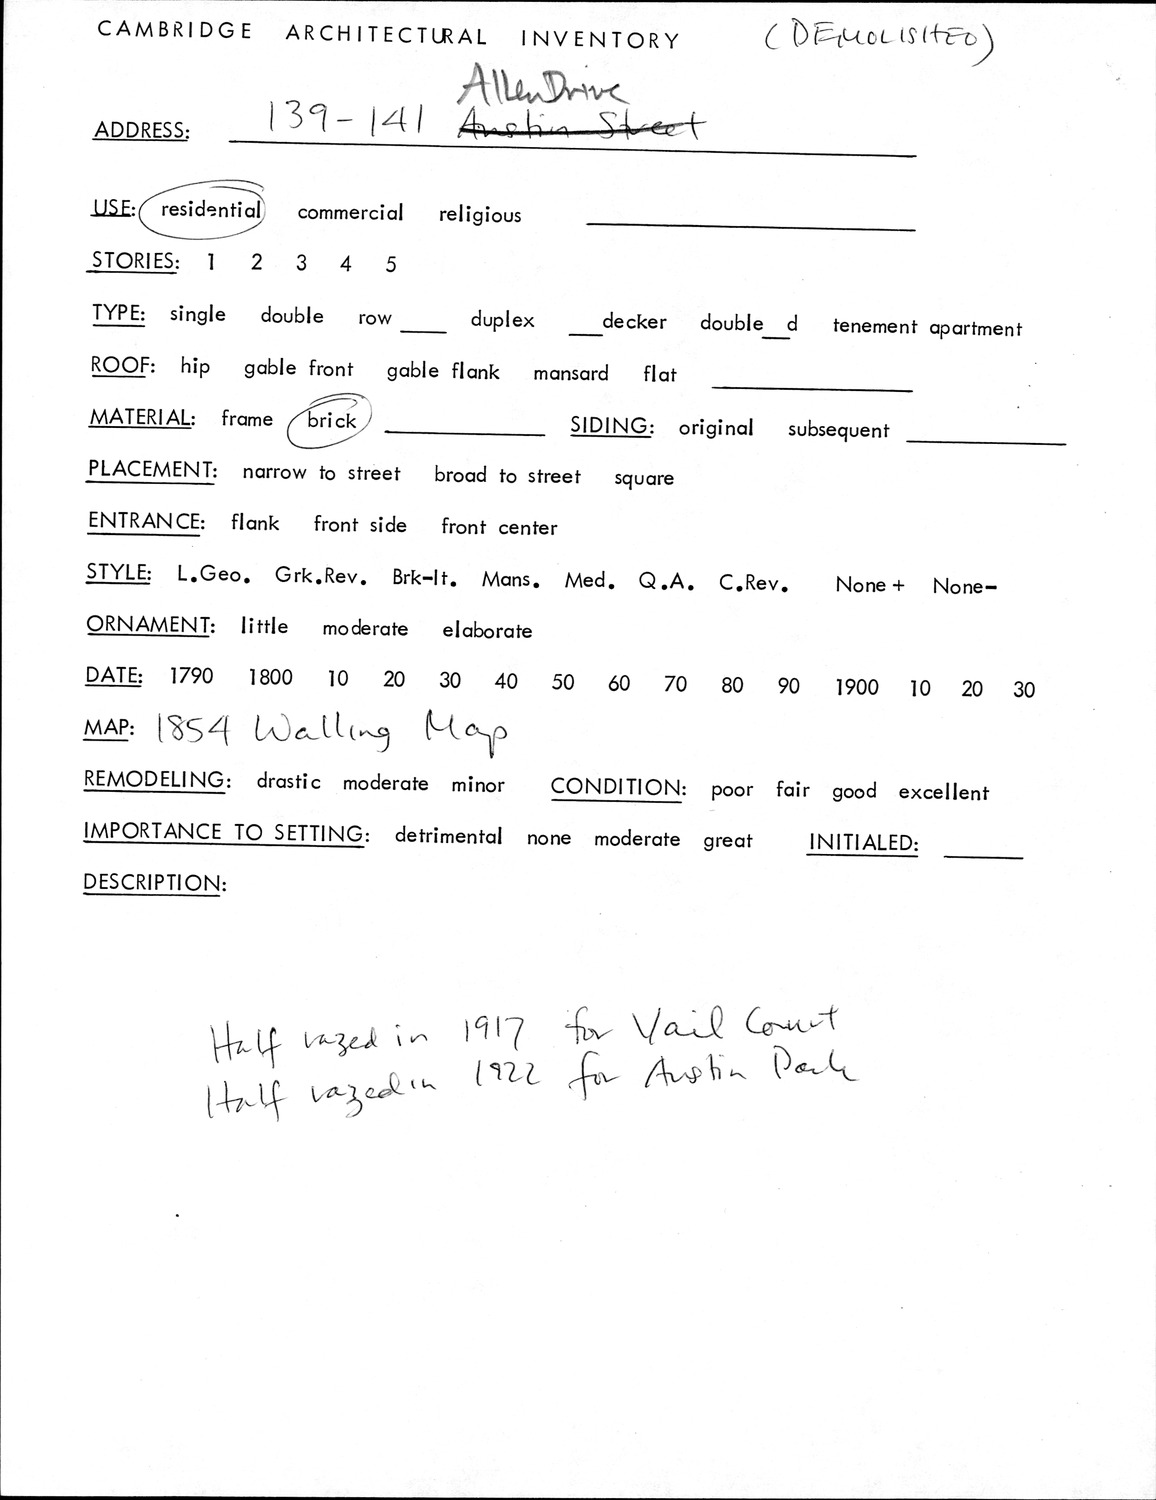 CAMBRIDGE ARCHITECTURAL INVENTORY (DEMOLISHED)
Allen Drive
ADDRESS: 139-141 Austin Street
USE: residential commercial religious
STORIES: 1 2 3 4 5
TYPE: single double row ____ duplex ___decker double__d tenement apartment
ROOF: hip gable front gable flank mansard flat
MATERIAL: frame brick SIDING: original subsequent
PLACEMENT: narrow to street broad to street square
ENTRANCE: flank front side front center
STYLE: L.Geo. Grk.Rev. Brk-It. Mans. Med. Q.A. C.Rev. None+ None-
ORNAMENT: little moderate elaborate
DATE: 1790 1800 10 20 30 40 50 60 70 80 90 1900 10 20 30
MAP: 1854 Walling Map
REMODELING: drastic moderate minor CONDITION: poor fair good excellent
IMPORTANCE TO SETTING: detrimental none moderate great INITIALED:
DESCRIPTION:
Half razed in 1917 for Vail Court
Half razed in 1922 for Austin Park